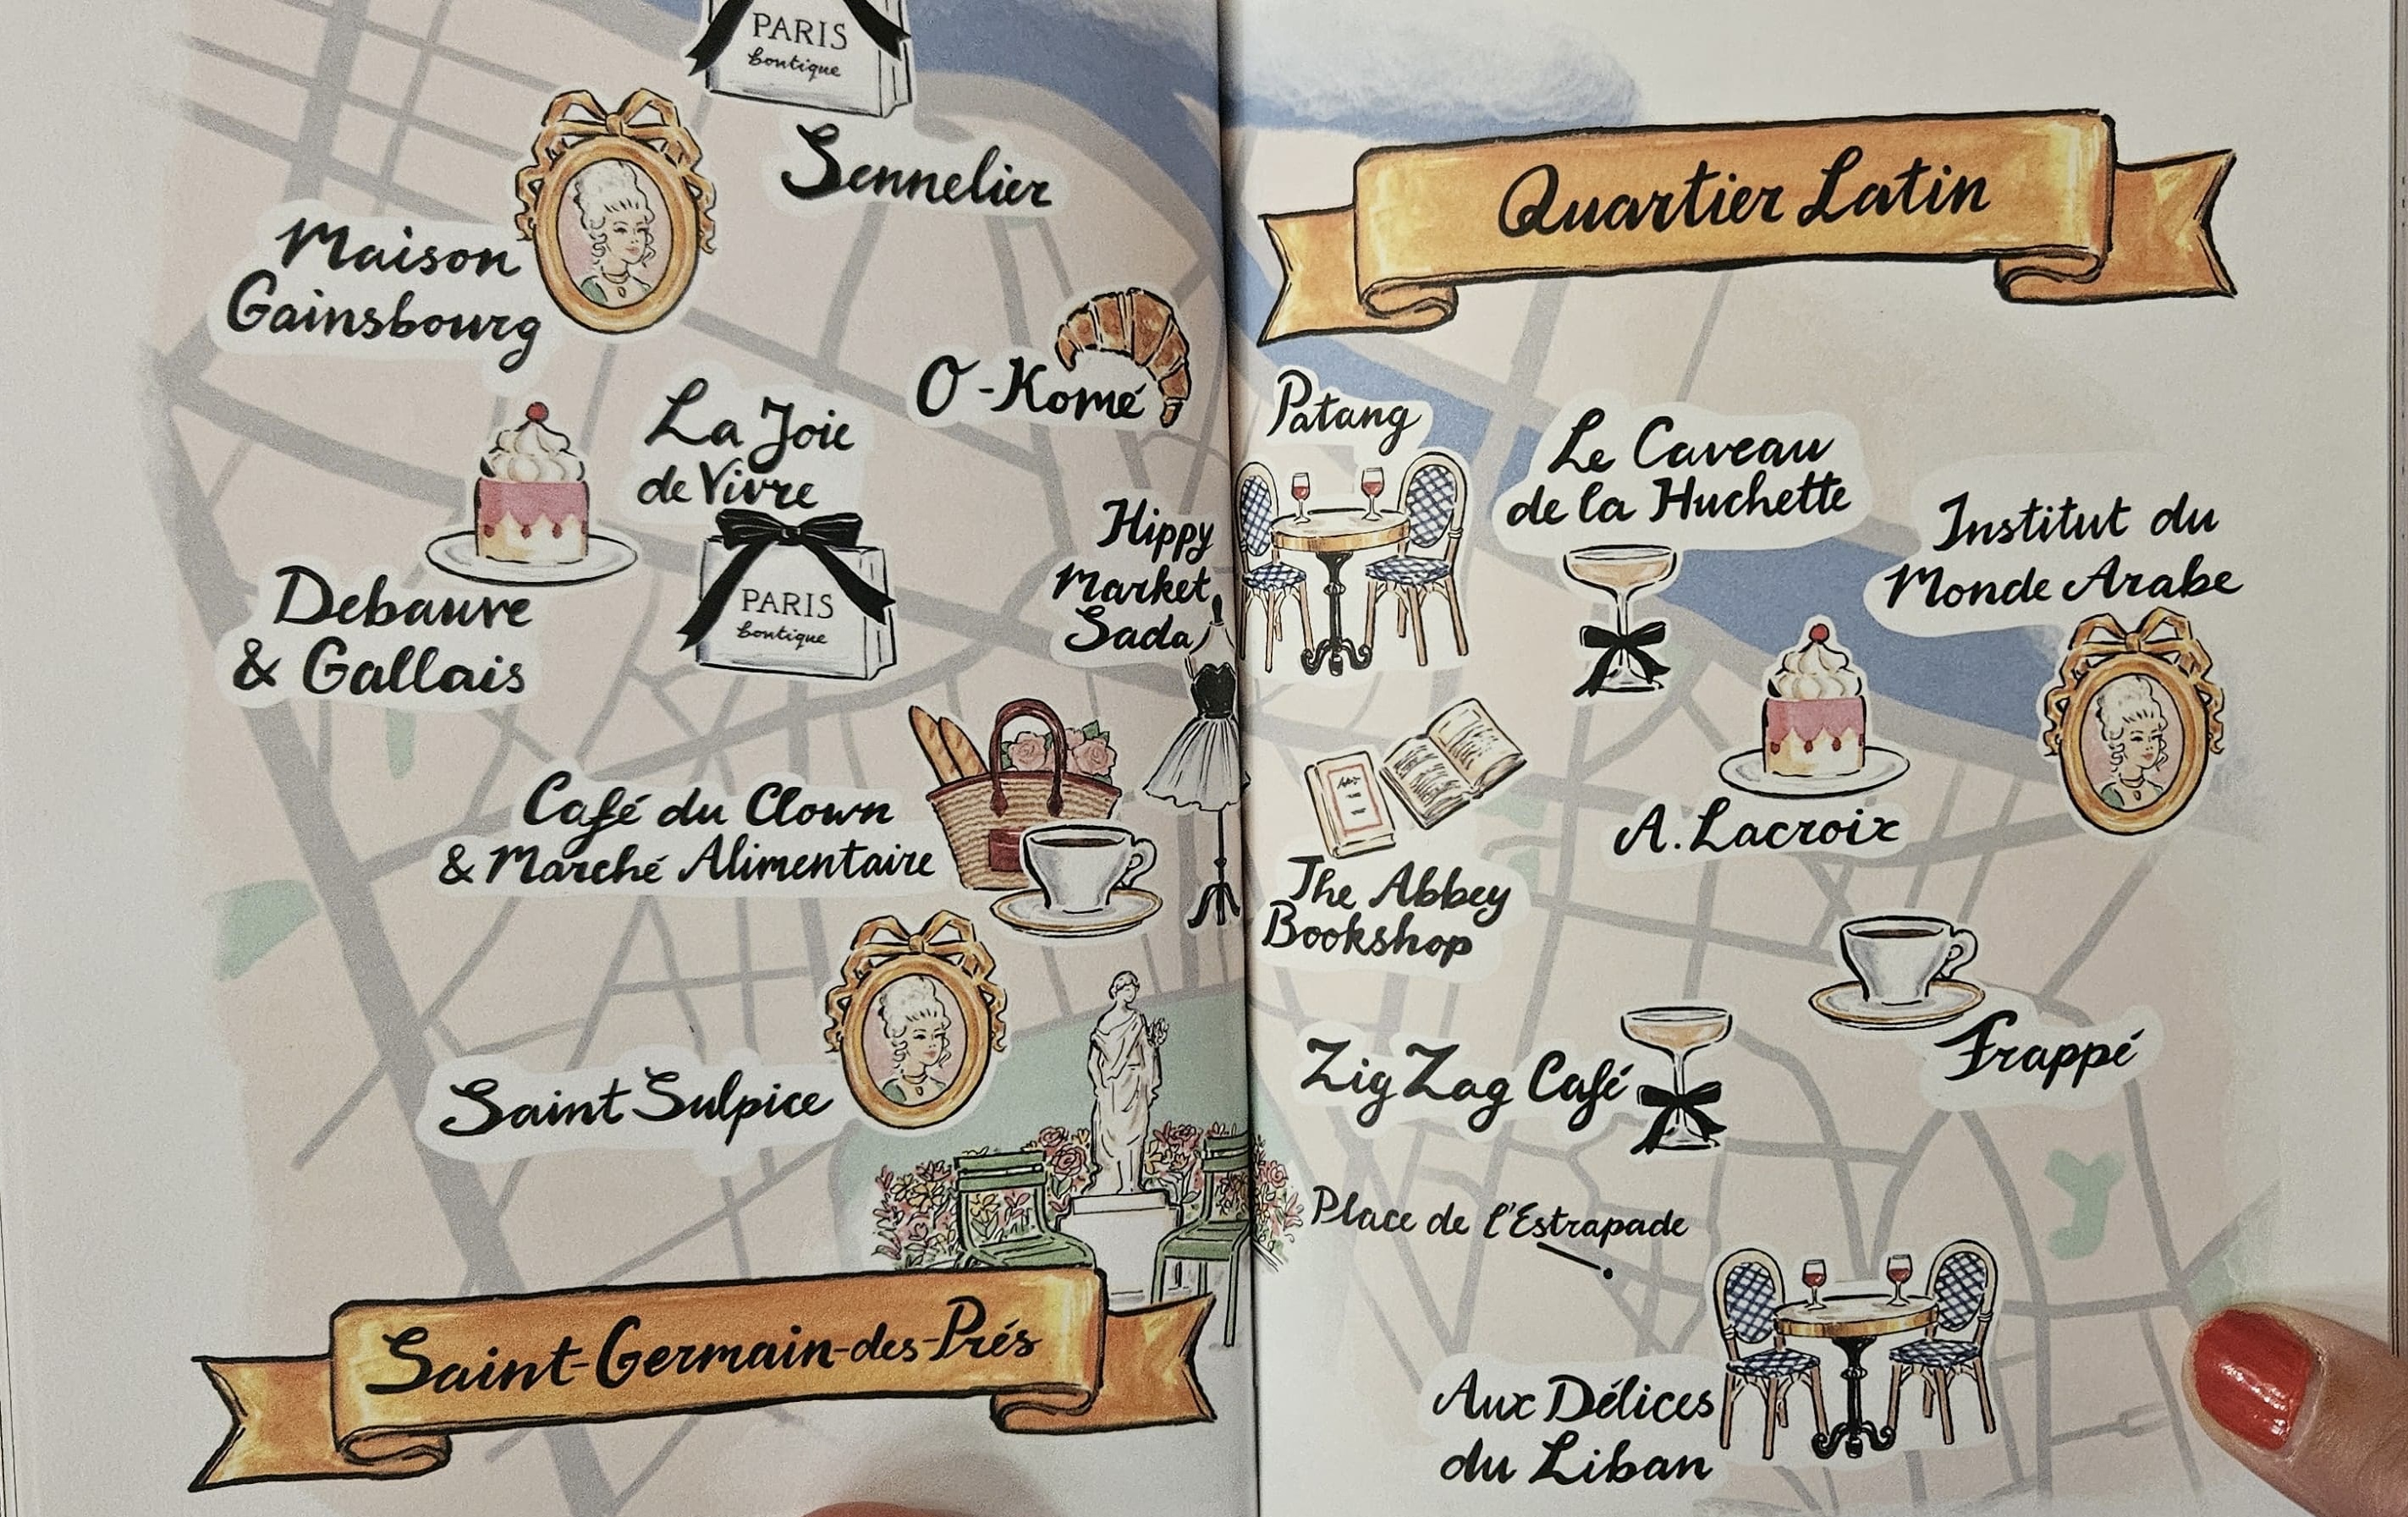 PARIS
boutique
Sennelier
Maison
Gainsbourg
O-Komé
La Joie
de Vivre
PARIS
boutique
Debauve
& Gallais
Hippy
Market
Sada
Café du Clown
& Marché Alimentaire
Saint Sulpice
Saint-Germain-des-Prés
Quartier Latin
Patang
Le Caveau
de la Huchette
Institut du
Monde Arabe
A. Lacroix
The Abbey
Bookshop
Frappé
Zig Zag Café
Place de l'Estrapade
Aux Délices
du Liban